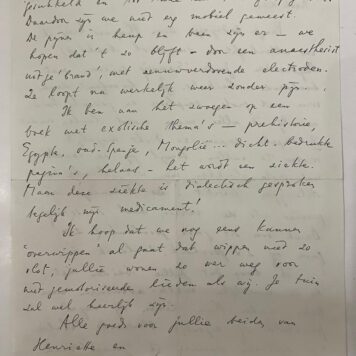 Daardoor zijn we niet erg mobiel geweest.
De pijnen in heup en been zijn er — we
hopen dat 't zo blijft — door een anaesthesist
"uitge'brand", met zenuwverdovende electroden.
Ze loopt nu werkelijk weer zonder pijn.
Ik ben aan het zwoegen op een
boek met exotische thema's — prehistorie,
Egypte, oud-Spanje, Mongolië... dicht-bedrukte
pagina's, helaas — het wordt een ziekte.
Maar deze ziekte is dialectisch gesproken
tegelijk mijn medicament!
Ik hoop dat we nog eens kunnen
"overwippen" al gaat dat wippen niet zo
vlot, jullie wonen zo ver weg voor
niet gemotoriseerde lieden als wij. Je tuin
zal wel heerlijk zijn.
Alle goeds voor jullie beiden, van
Henriette en